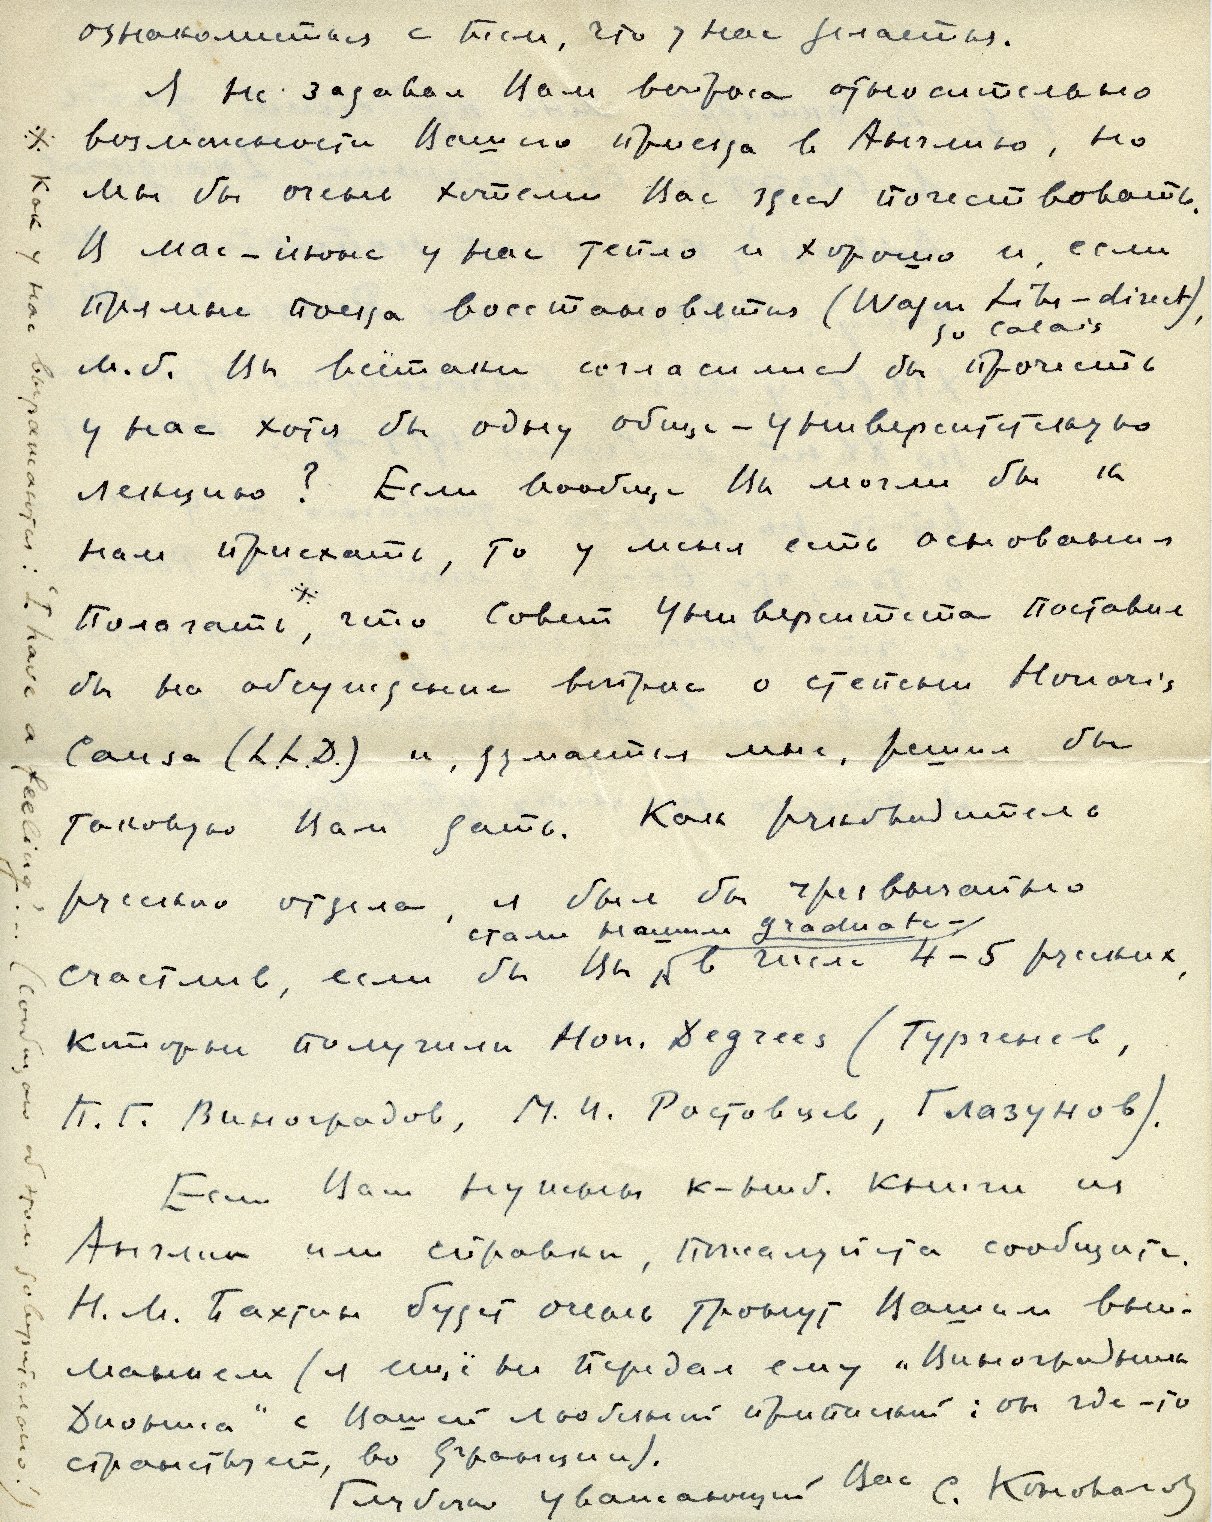 ознакомиться с тем, что у нас делается.
Я не задавал Вам вопроса относительно
возможности Вашего приезда в Англию, но
мы бы очень хотели Вас здесь почествовать.
В мае-июне у нас тепло и хорошо и, если
прямые поезда восстановятся (Wagon Lits-direct),
до Calais
м.б. Вы всётаки согласились бы прочесть
у нас хотя бы одну обще-университетскую
лекцию? Если вообще Вы могли бы к
нам приехать, то у меня есть основания
полагать※, что Совет Университета поставил
бы на обсуждение вопрос о степени Honoris
Causa (L.L.D.) и, думается мне, решил бы
таковую Вам дать. Как руководитель
русского отдела, я был бы чрезвычайно
стали нашим graduate
счастлив, если бы Вы в числе 4-5 русских,
которые получили Hon. Degrees (Тургенев,
П.Г. Виноградов, М.И. Ростовцев, Глазунов).
Если Вам нужны к-ниб. книги из
Англии или справки, пожалуйста сообщите.
Н.М. Бахтин будет очень тронут Вашим вни-
манием (я ещё не передал ему „Виноградник
Диониса" с Вашей любезной припиской: он где-то
странствует, во Франции).
Глубоко уважающий Вас С. Коновалов
※ Как у нас выражаются: "I have a feeling"... (сообщаю об этом доверительно!)